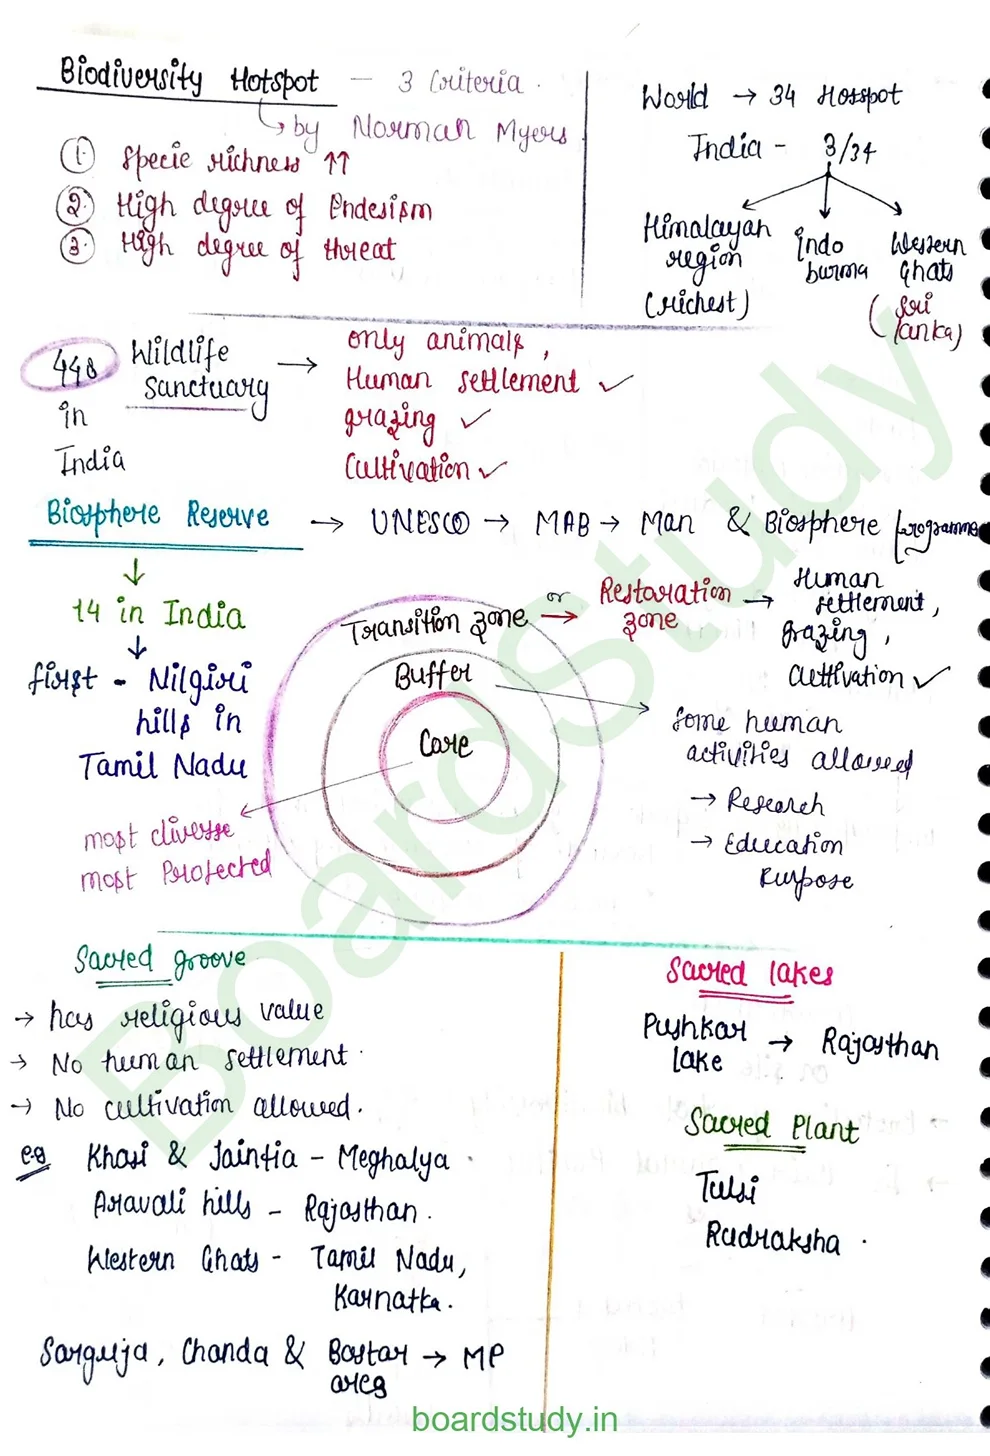 Biodiversity Hotspot — 3 Criteria.
↳ by Norman Myers
① Specie richness ↑↑
② High degree of Endesism
③ High degree of threat
World → 34 Hotspot
India - 3/34
Himalayan region (richest)
indo burma
Western Ghats (Sri lanka)
448 in India
Wildlife Sanctuary →
only animals,
Human settlement ✓
grazing ✓
Cultivation ✓
Biosphere Reserve → UNESCO → MAB → Man & Biosphere programme
↓
14 in India
↓
first - Nilgiri
hills in
Tamil Nadu
Transition zone or → Restoration zone →
Human
settlement,
grazing,
Cultivation ✓
Buffer
Some human
activities allowed
→ Research
→ Education
Purpose
Core
most diverse
most Protected
Sacred groove
→ has religious value
→ No human settlement.
→ No cultivation allowed.
e.g Khasi & Jaintia - Meghalya.
Aravali hills - Rajasthan.
Western Ghats - Tamil Nadu,
Karnatka.
Sarguja, Chanda & Bastar → MP
area
Sacred lakes
Pushkar lake → Rajasthan
Sacred Plant
Tulsi
Rudraksha.
Boardstudy
boardstudy.in